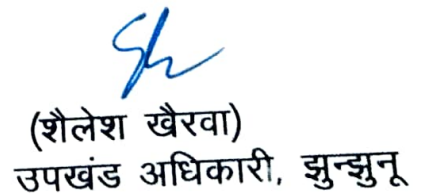 (शैलेश खैरवा)
उपखंड अधिकारी, झुन्झुनू